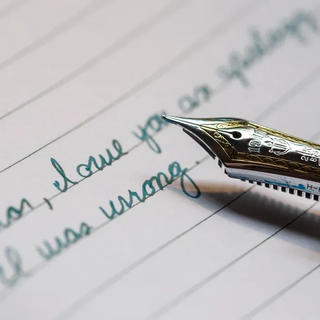 I owe you an apology
I was wrong.